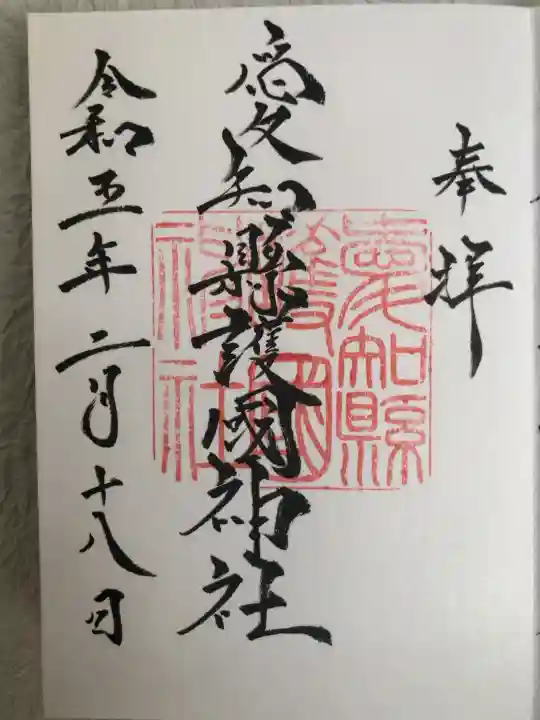 奉拝
愛知縣護國神社
令和五年二月十八日
愛知縣
護國
神社